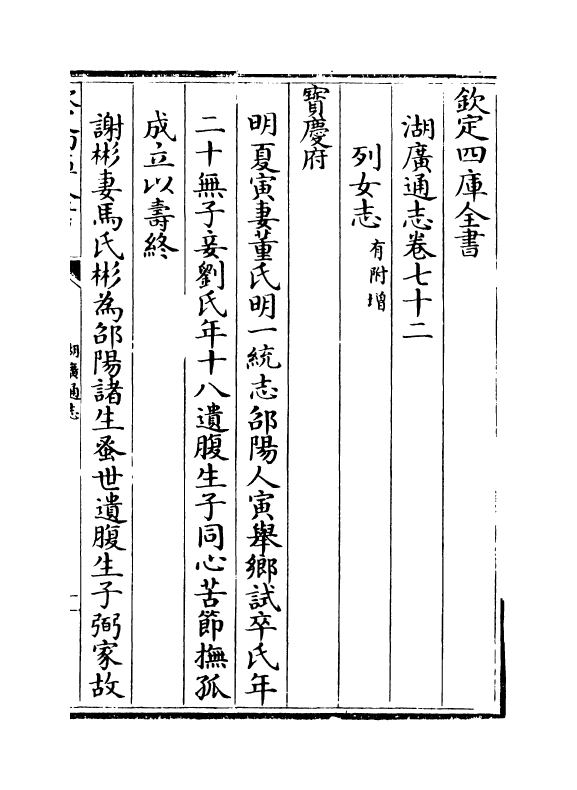 欽定四庫全書
湖廣通志卷七十二
列女志有附增
寶慶府
明夏寅妻董氏明一統志邵陽人寅舉鄉試卒氏年
二十無子妾劉氏年十八遺腹生子同心苦節撫孤
成立以壽終
謝彬妻馬氏彬為邵陽諸生蚤世遺腹生子弼家故
湖廣通志